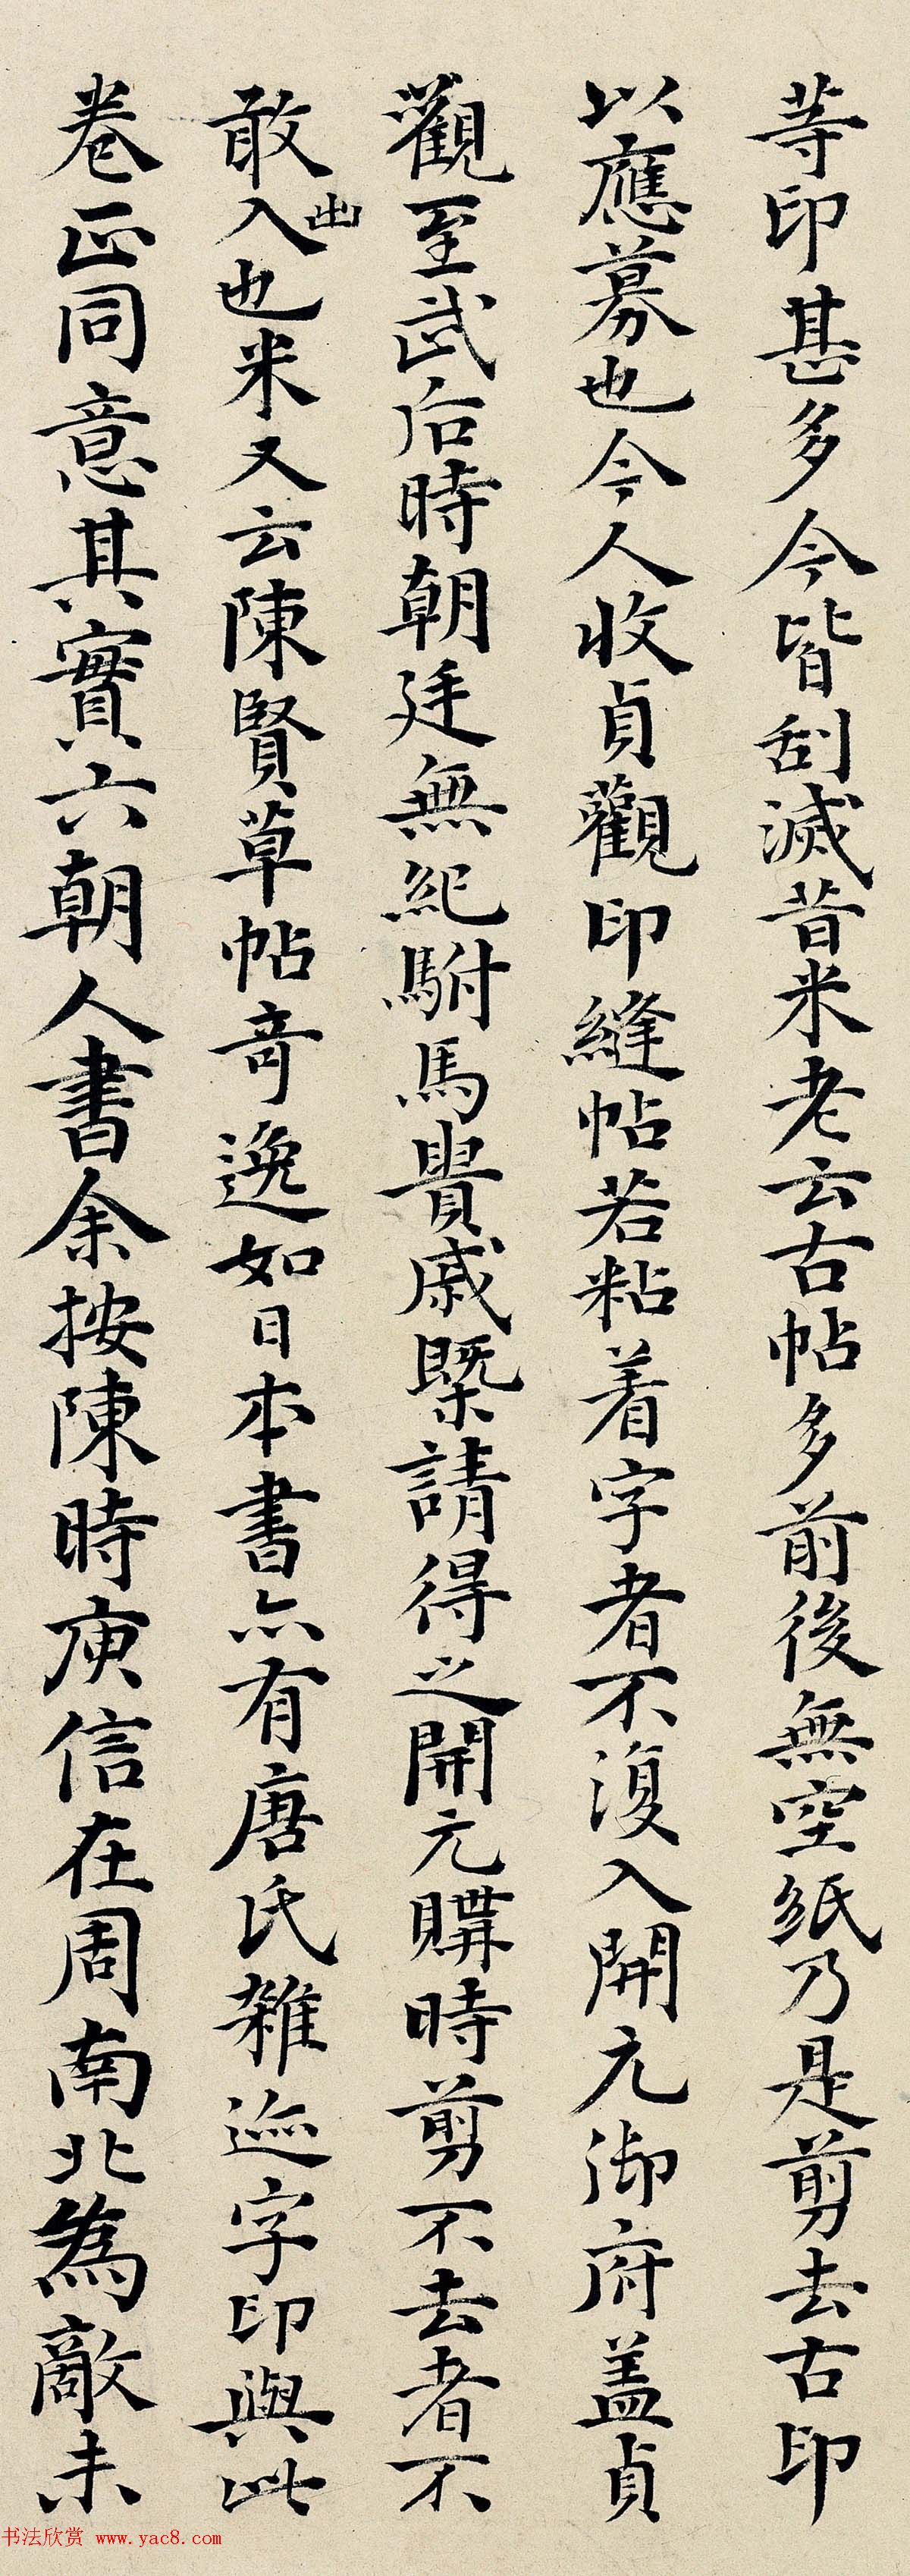 等印甚多今皆刮滅昔米老云古帖多前後無空紙乃是剪去古印
以應募也今人收貞觀印縫帖若粘着字者不復入開元御府盖貞
觀至武后時朝廷無紀駙馬貴戚槩請得之開元購時剪不去者不
敢入出也米又云陳賢草帖奇逸如日本書亦有唐氏雜迹字印與此
卷正同意其實六朝人書余按陳時庾信在周南北為敵未
书法欣赏 www.yac8.com